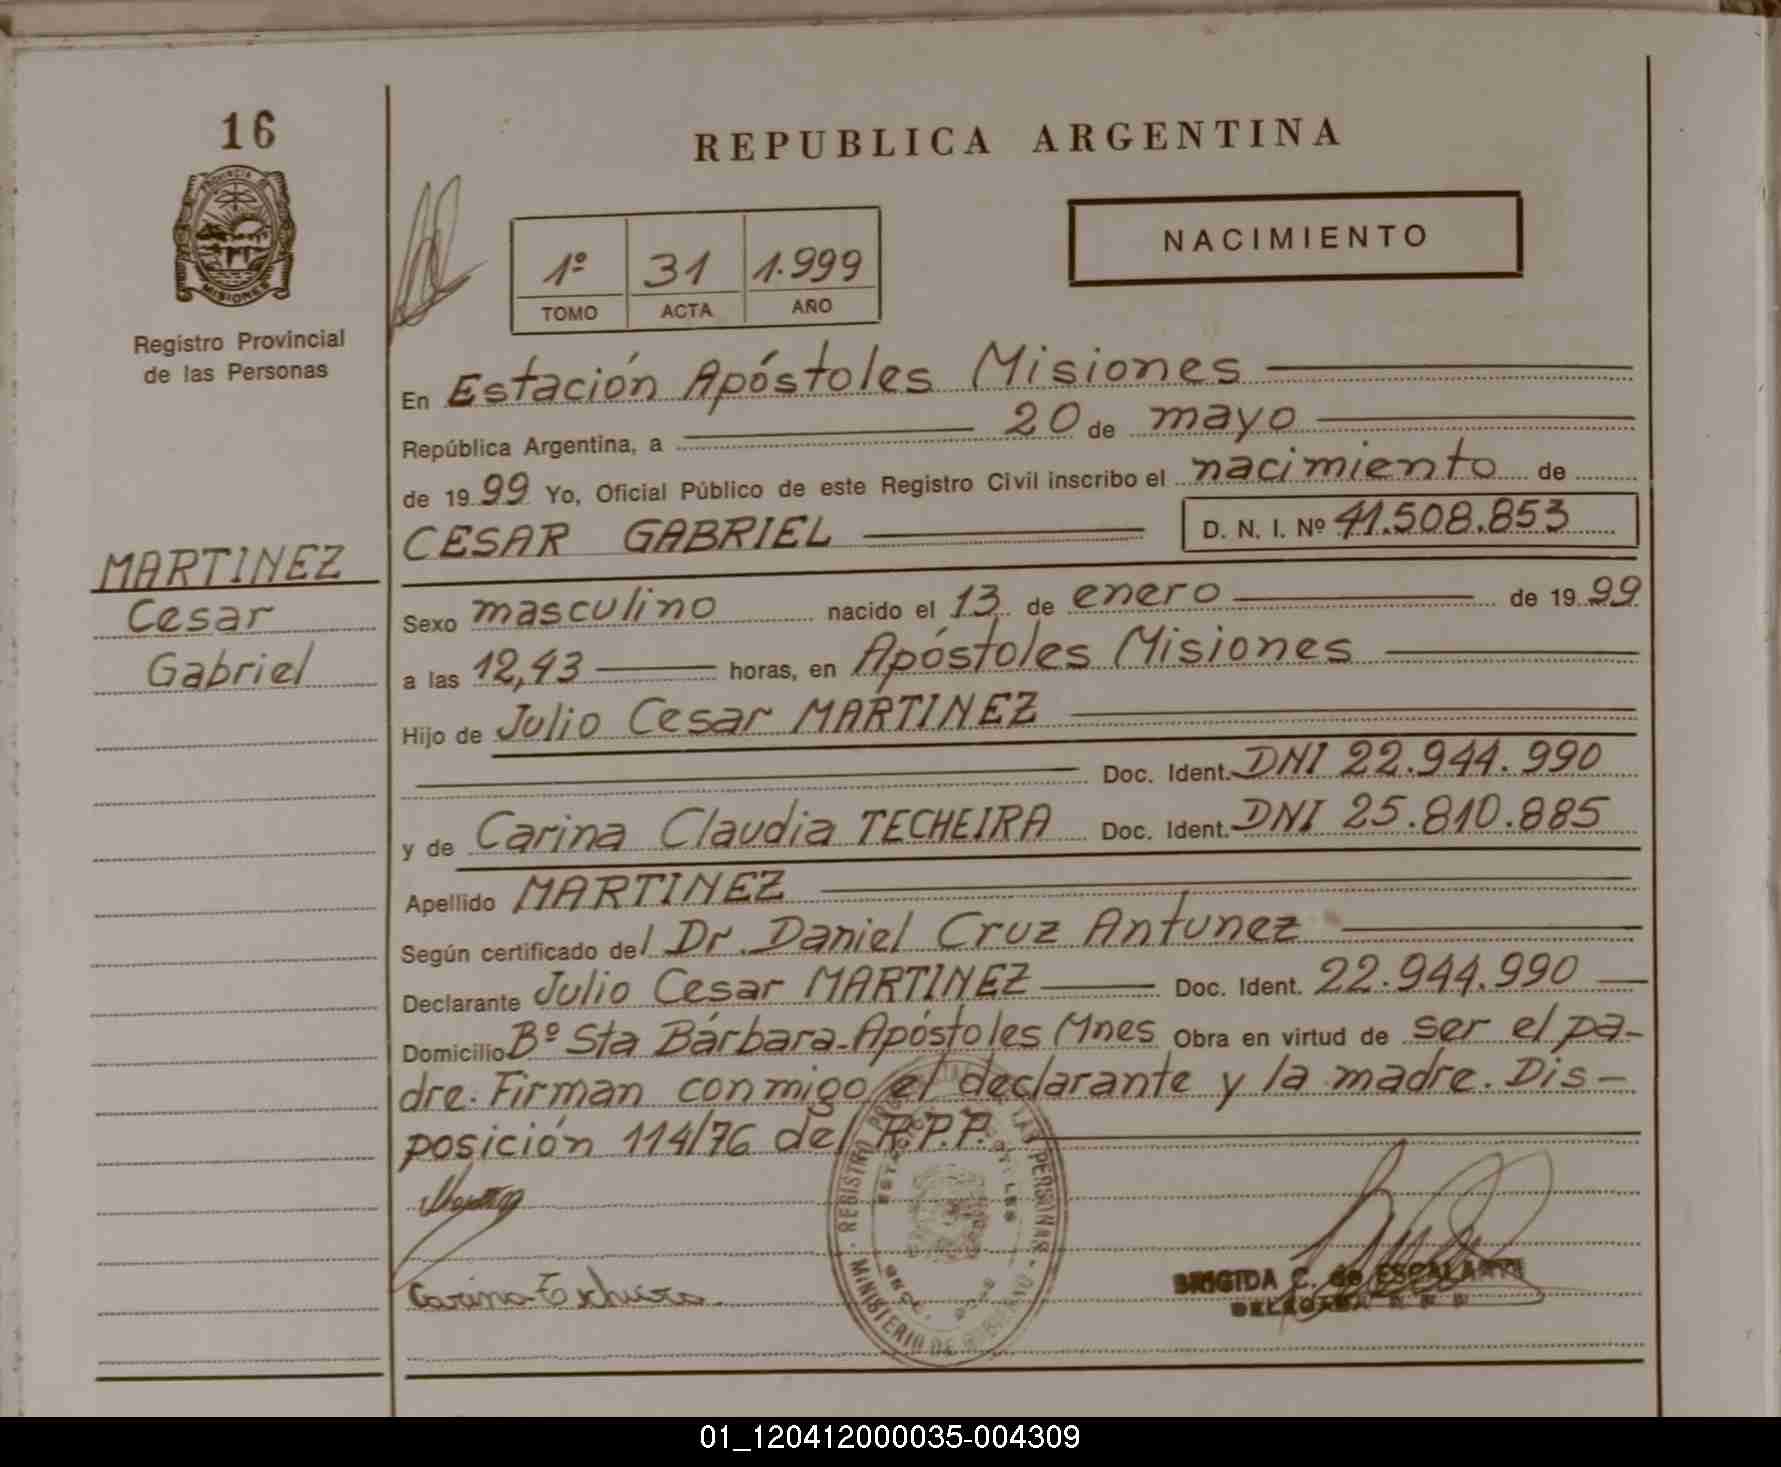 16
PROVINCIA DE
MISIONES
Registro Provincial
de las Personas
MARTINEZ
Cesar
Gabriel
REPUBLICA ARGENTINA
1º 31 1.999
TOMO ACTA AÑO
NACIMIENTO
En Estación Apóstoles Misiones
República Argentina, a 20 de mayo
de 1999 Yo, Oficial Público de este Registro Civil inscribo el nacimiento de
CESAR GABRIEL D. N. I. Nº 41.508.853
Sexo masculino nacido el 13 de enero de 1999
a las 12,43 horas, en Apóstoles Misiones
Hijo de Julio Cesar MARTINEZ
Doc. Ident. DNI 22.944.990
y de Carina Claudia TECHEIRA Doc. Ident. DNI 25.810.885
Apellido MARTINEZ
Según certificado del Dr. Daniel Cruz Antúnez
Declarante Julio Cesar MARTINEZ Doc. Ident. 22.944.990
Domicilio Bº Sta Bárbara-Apóstoles Mnes Obra en virtud de ser el pa-
dre. Firman conmigo el declarante y la madre. Dis-
posición 114/76 del R.P.P.
REGISTRO LAS PERSONAS
MINISTERIO DE
Carina Techeira
BRIGIDA C. de ESCALANTE
DELEGADA
01_120412000035-004309